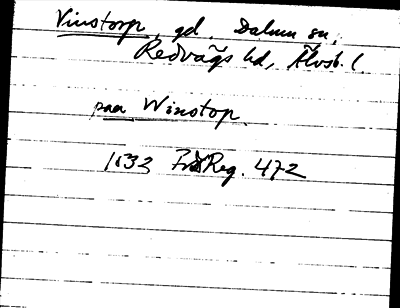 Vinstorp, gd, Dalum sn,
Redvägs hd, Älvsb. l.
paa Winstop
1532 Reg. 472